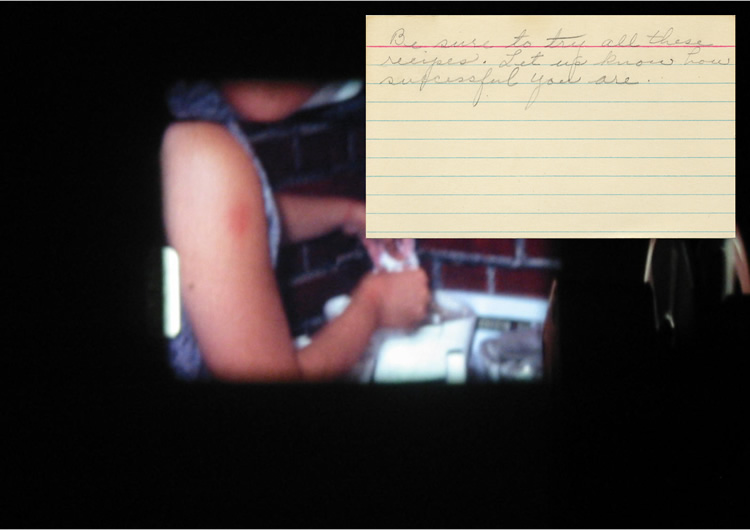 Be sure to try all these
recipes. Let us know how
successful you are.